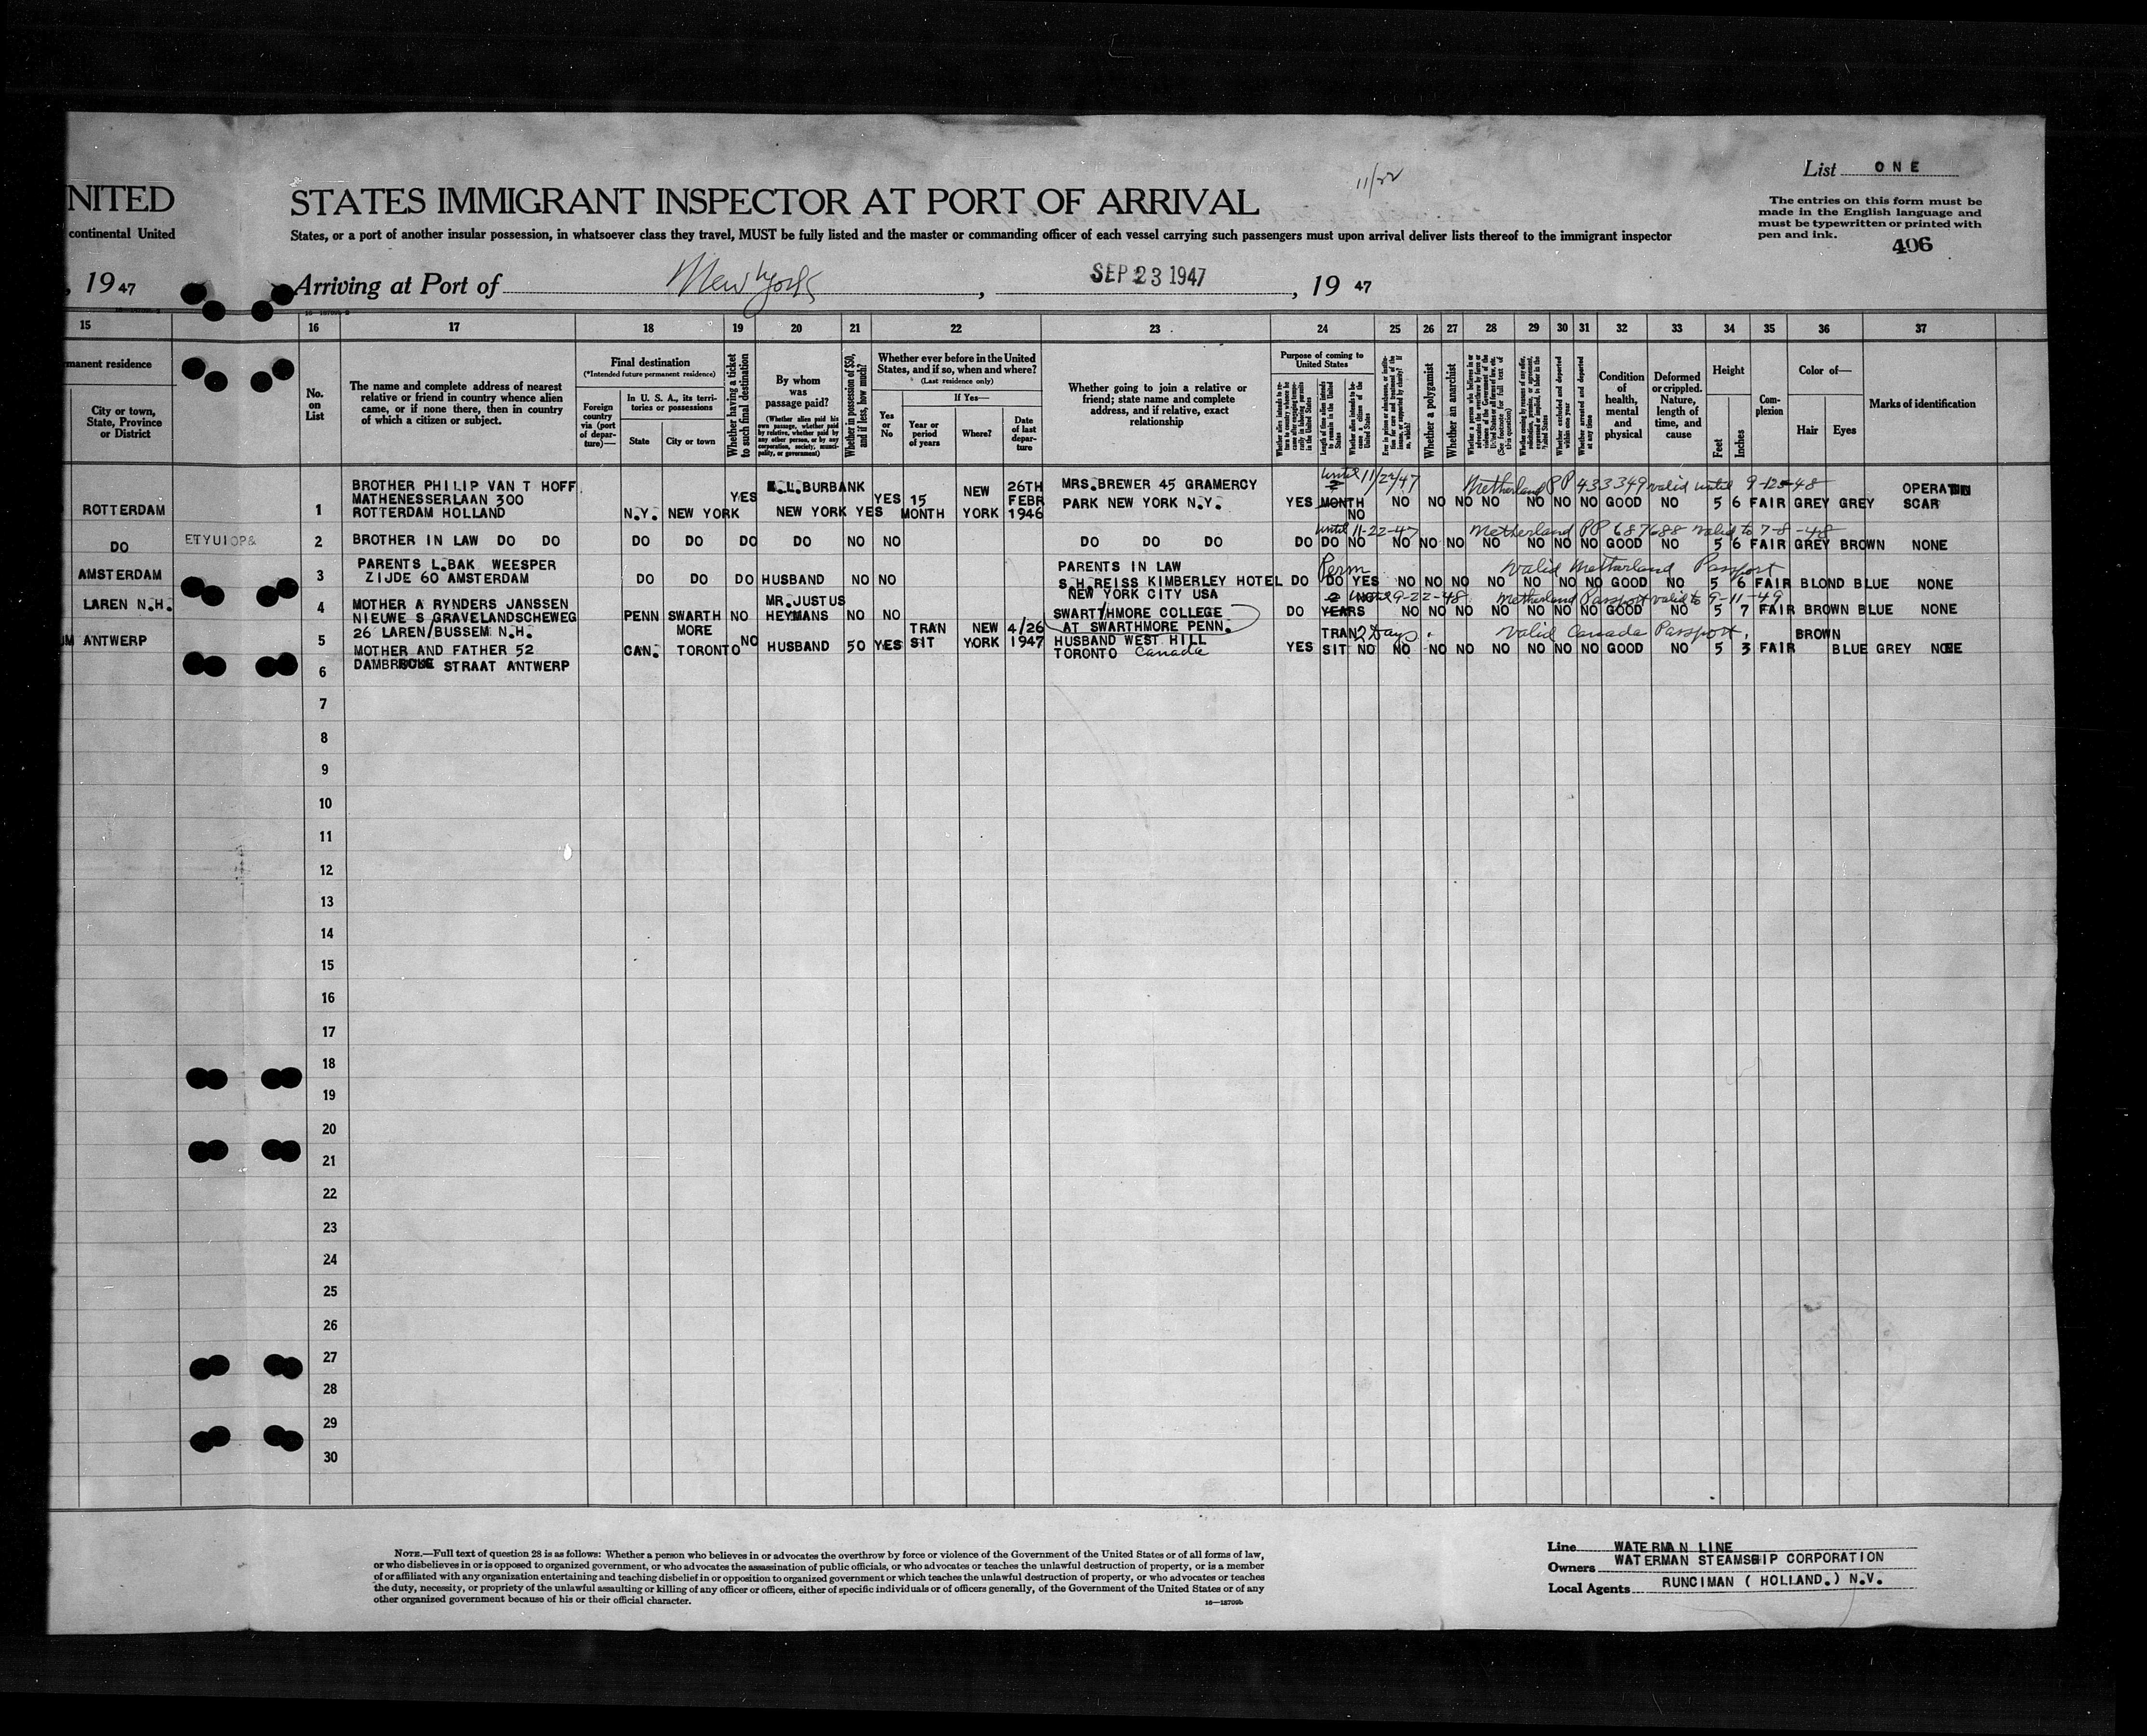 11/22
List ONE
NITED STATES IMMIGRANT INSPECTOR AT PORT OF ARRIVAL
The entries on this form must be
made in the English language and
must be typewritten or printed with
pen and ink.
406
continental United States, or a port of another insular possession, in whatsoever class they travel, MUST be fully listed and the master or commanding officer of each vessel carrying such passengers must upon arrival deliver lists thereof to the immigrant inspector
, 19 47 Arriving at Port of New York, SEP 23 1947, 19 47
15 16 17 18 19 20 21 22 23 24 25 26 27 28 29 30 31 32 33 34 35 36 37
manent residence
City or town,
State, Province
or District
No.
on
List
The name and complete address of nearest
relative or friend in country whence alien
came, or if none there, then in country
of which a citizen or subject.
Final destination
(*Intended future permanent residence)
Foreign
country
via (port
of depar-
ture)—
In U. S. A., its terri-
tories or possessions
State City or town
Whether having a ticket
to such final destination
By whom
was
passage paid?
(Whether alien paid his
own passage, whether paid
by relative, whether paid by
any other person, or by any
corporation, society, munici-
pality, or government)
Whether in possession of $50,
and if less, how much?
Whether ever before in the United
States, and if so, when and where?
(Last residence only)
Yes
or
No
If Yes—
Year or
period
of years
Where?
Date
of last
depar-
ture
Whether going to join a relative or
friend; state name and complete
address, and if relative, exact
relationship
Purpose of coming to
United States
Whether a polygamist
Whether an anarchist
Condition
of
health,
mental
and
physical
Deformed
or crippled.
Nature,
length of
time, and
cause
Height
Feet Inches
Com-
plexion
Color of—
Hair Eyes
Marks of identification
BROTHER PHILIP VAN T HOFF L.BURBANK 26TH MRS.BREWER 45 GRAMERCY until 11/22/47 Netherland PP 433349 valid until OPERATION
MATHENESSERLAAN 300 YES YES 15 NEW FEBR PARK NEW YORK N.Y. YES MONTH NO NO NO NO NO NO NO GOOD NO 5 6 FAIR GREY GREY SCAR
ROTTERDAM 1 ROTTERDAM HOLLAND N.Y. NEW YORK NEW YORK YES MONTH YORK 1946 NO
until 11-22-47 Netherland PP 687688 valid to 7-8-48
DO ETYUIOP& 2 BROTHER IN LAW DO DO DO DO DO DO NO NO DO DO DO DO DO NO NO NO NO NO NO NO NO GOOD NO 5 6 FAIR GREY BROWN NONE
PARENTS L.BAK WEESPER PARENTS IN LAW Perm Valid Netherland Passport
AMSTERDAM 3 ZIJDE 60 AMSTERDAM DO DO DO HUSBAND NO NO S.H.REISS KIMBERLEY HOTEL DO DO YES NO NO NO NO NO NO NO GOOD NO 5 6 FAIR BLOND BLUE NONE
NEW YORK CITY USA
LAREN N.H. 4 MOTHER A RYNDERS JANSSEN MR.JUSTUS 2 until 9-22-48 Netherland Passport valid to 9-11-49
NIEUWE S GRAVELANDSCHEWEG PENN SWARTH NO HEYMANS NO NO SWARTHMORE COLLEGE DO YEARS NO NO NO NO NO NO NO GOOD NO 5 7 FAIR BROWN BLUE NONE
26 LAREN/BUSSEM N.H. MORE TRAN NEW 4/26 AT SWARTHMORE PENN. TRAN 2 Days. Valid Canada Passport. BROWN
M ANTWERP 5 MOTHER AND FATHER 52 CAN. TORONTO NO HUSBAND 50 YES SIT YORK 1947 HUSBAND WEST HILL YES SIT NO NO NO NO NO NO NO NO GOOD NO 5 3 FAIR BLUE GREY NONE
TORONTO Canada
6 STRAAT ANTWERP
7
8
9
10
11
12
13
14
15
16
17
18
19
20
21
22
23
24
25
26
27
28
29
30
NOTE.—Full text of question 28 is as follows: Whether a person who believes in or advocates the overthrow by force or violence of the Government of the United States or of all forms of law,
or who disbelieves in or is opposed to organized government, or who advocates the assassination of public officials, or who advocates or teaches the unlawful destruction of property, or is a member
of or affiliated with any organization entertaining and teaching disbelief in or opposition to organized government or which teaches the unlawful destruction of property, or who advocates or teaches
the duty, necessity, or propriety of the unlawful assaulting or killing of any officer or officers, either of specific individuals or of officers generally, of the Government of the United States or of any
other organized government because of his or their official character.
16—18709b
Line WATERMAN LINE
Owners WATERMAN STEAMSHIP CORPORATION
Local Agents RUNCIMAN ( HOLLAND.) N.V.